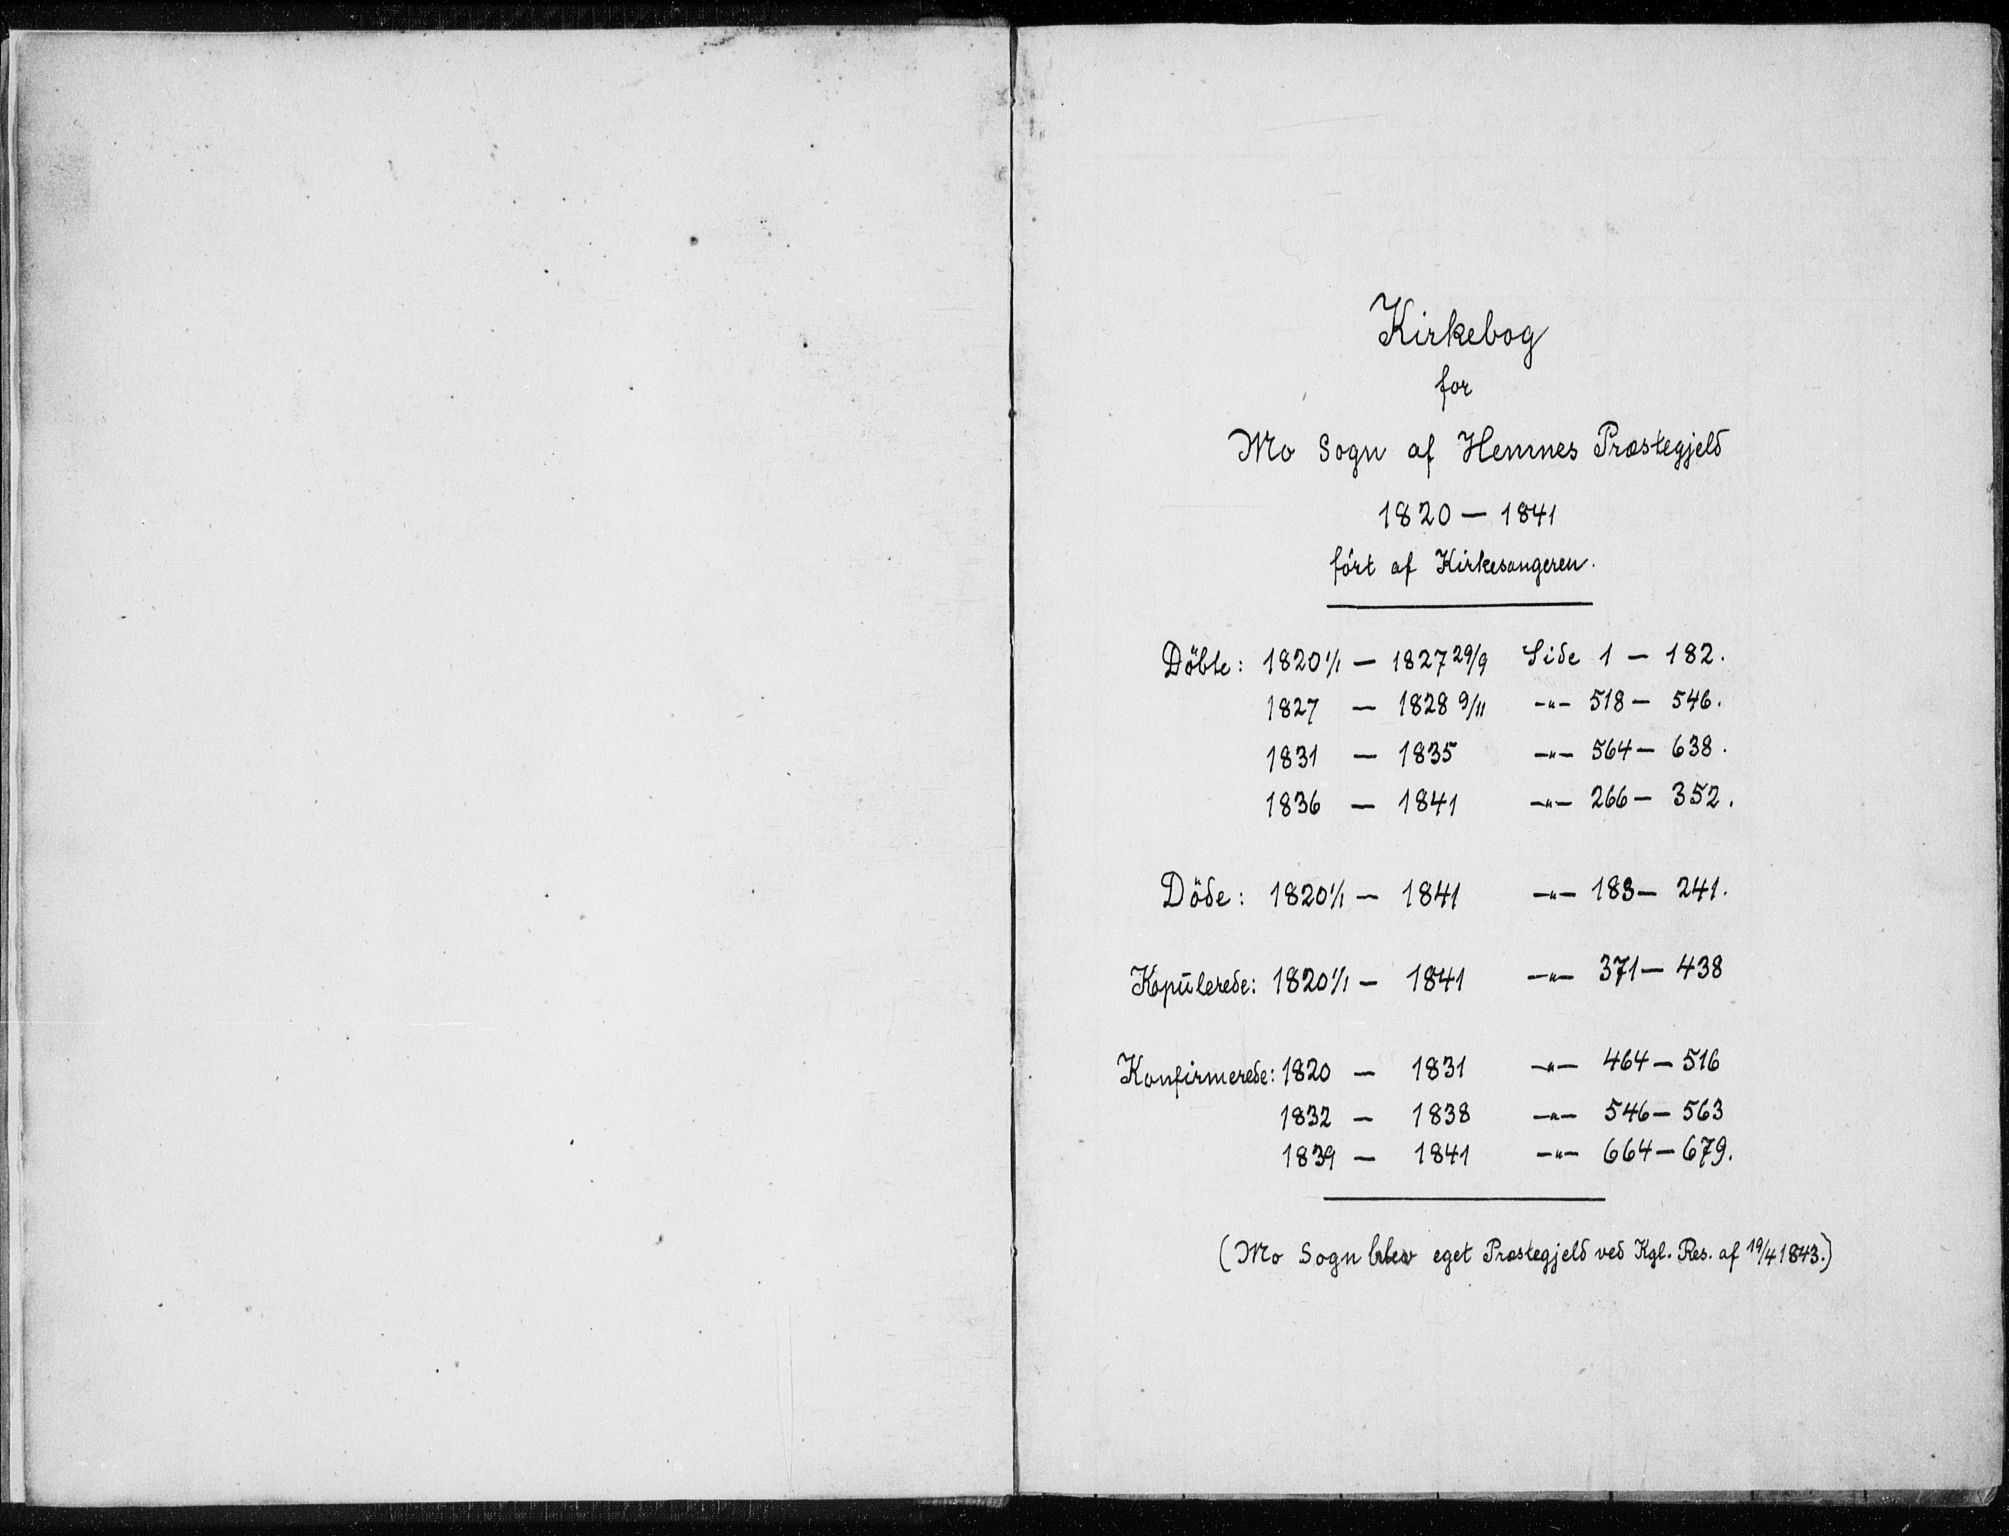 Kirkebog
for
Mo Sogn af Hemnes Præstegjeld
1820 — 1841
ført af Kirkesangeren.
Döbte: 1820 1/1 — 1827 29/9 Side 1 — 182.
1827 — 1828 9/11 -"- 518 — 546.
1831 — 1835 -"- 564 — 638.
1836 — 1841 -"- 266 — 352.
Döde: 1820 1/1 — 1841 -"- 183 — 241.
Kopulerede: 1820 1/1 — 1841 -"- 371 — 438
Konfirmerede: 1820 — 1831 -"- 464 — 516
1832 — 1838 -"- 546 — 563
1839 — 1841 -"- 664 — 679.
(Mo Sogn blev eget Præstegjeld ved Kgl. Res. af 19/4 1843.)